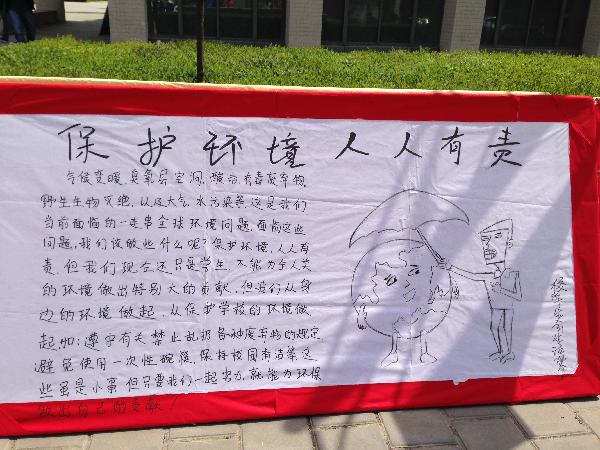 保护环境人人有责
气候变暖,臭氧层空洞,酸雨,有毒废弃物,
野生生物灭绝,以及大气,水污染等这是我们
当前面临的一走串全球环境问题,面临这些
问题,我们该做些什么呢?保护环境,人人有
责,但我们现今还只是学生,不能为全人类
的环境做出特别大的贡献,但我们从身
边的环境做起,从保护学校的环境做
起如:遵守有关禁止乱扔各种废弃物的规定
避免使用一次性碗筷,保持校园清洁等这
些虽是小事,但只要我们一起努力,就能为环保
做出自己的贡献!